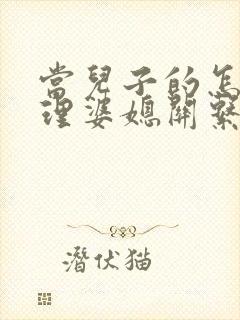 當兒子的怎
理婆媳關系
潛伏猫